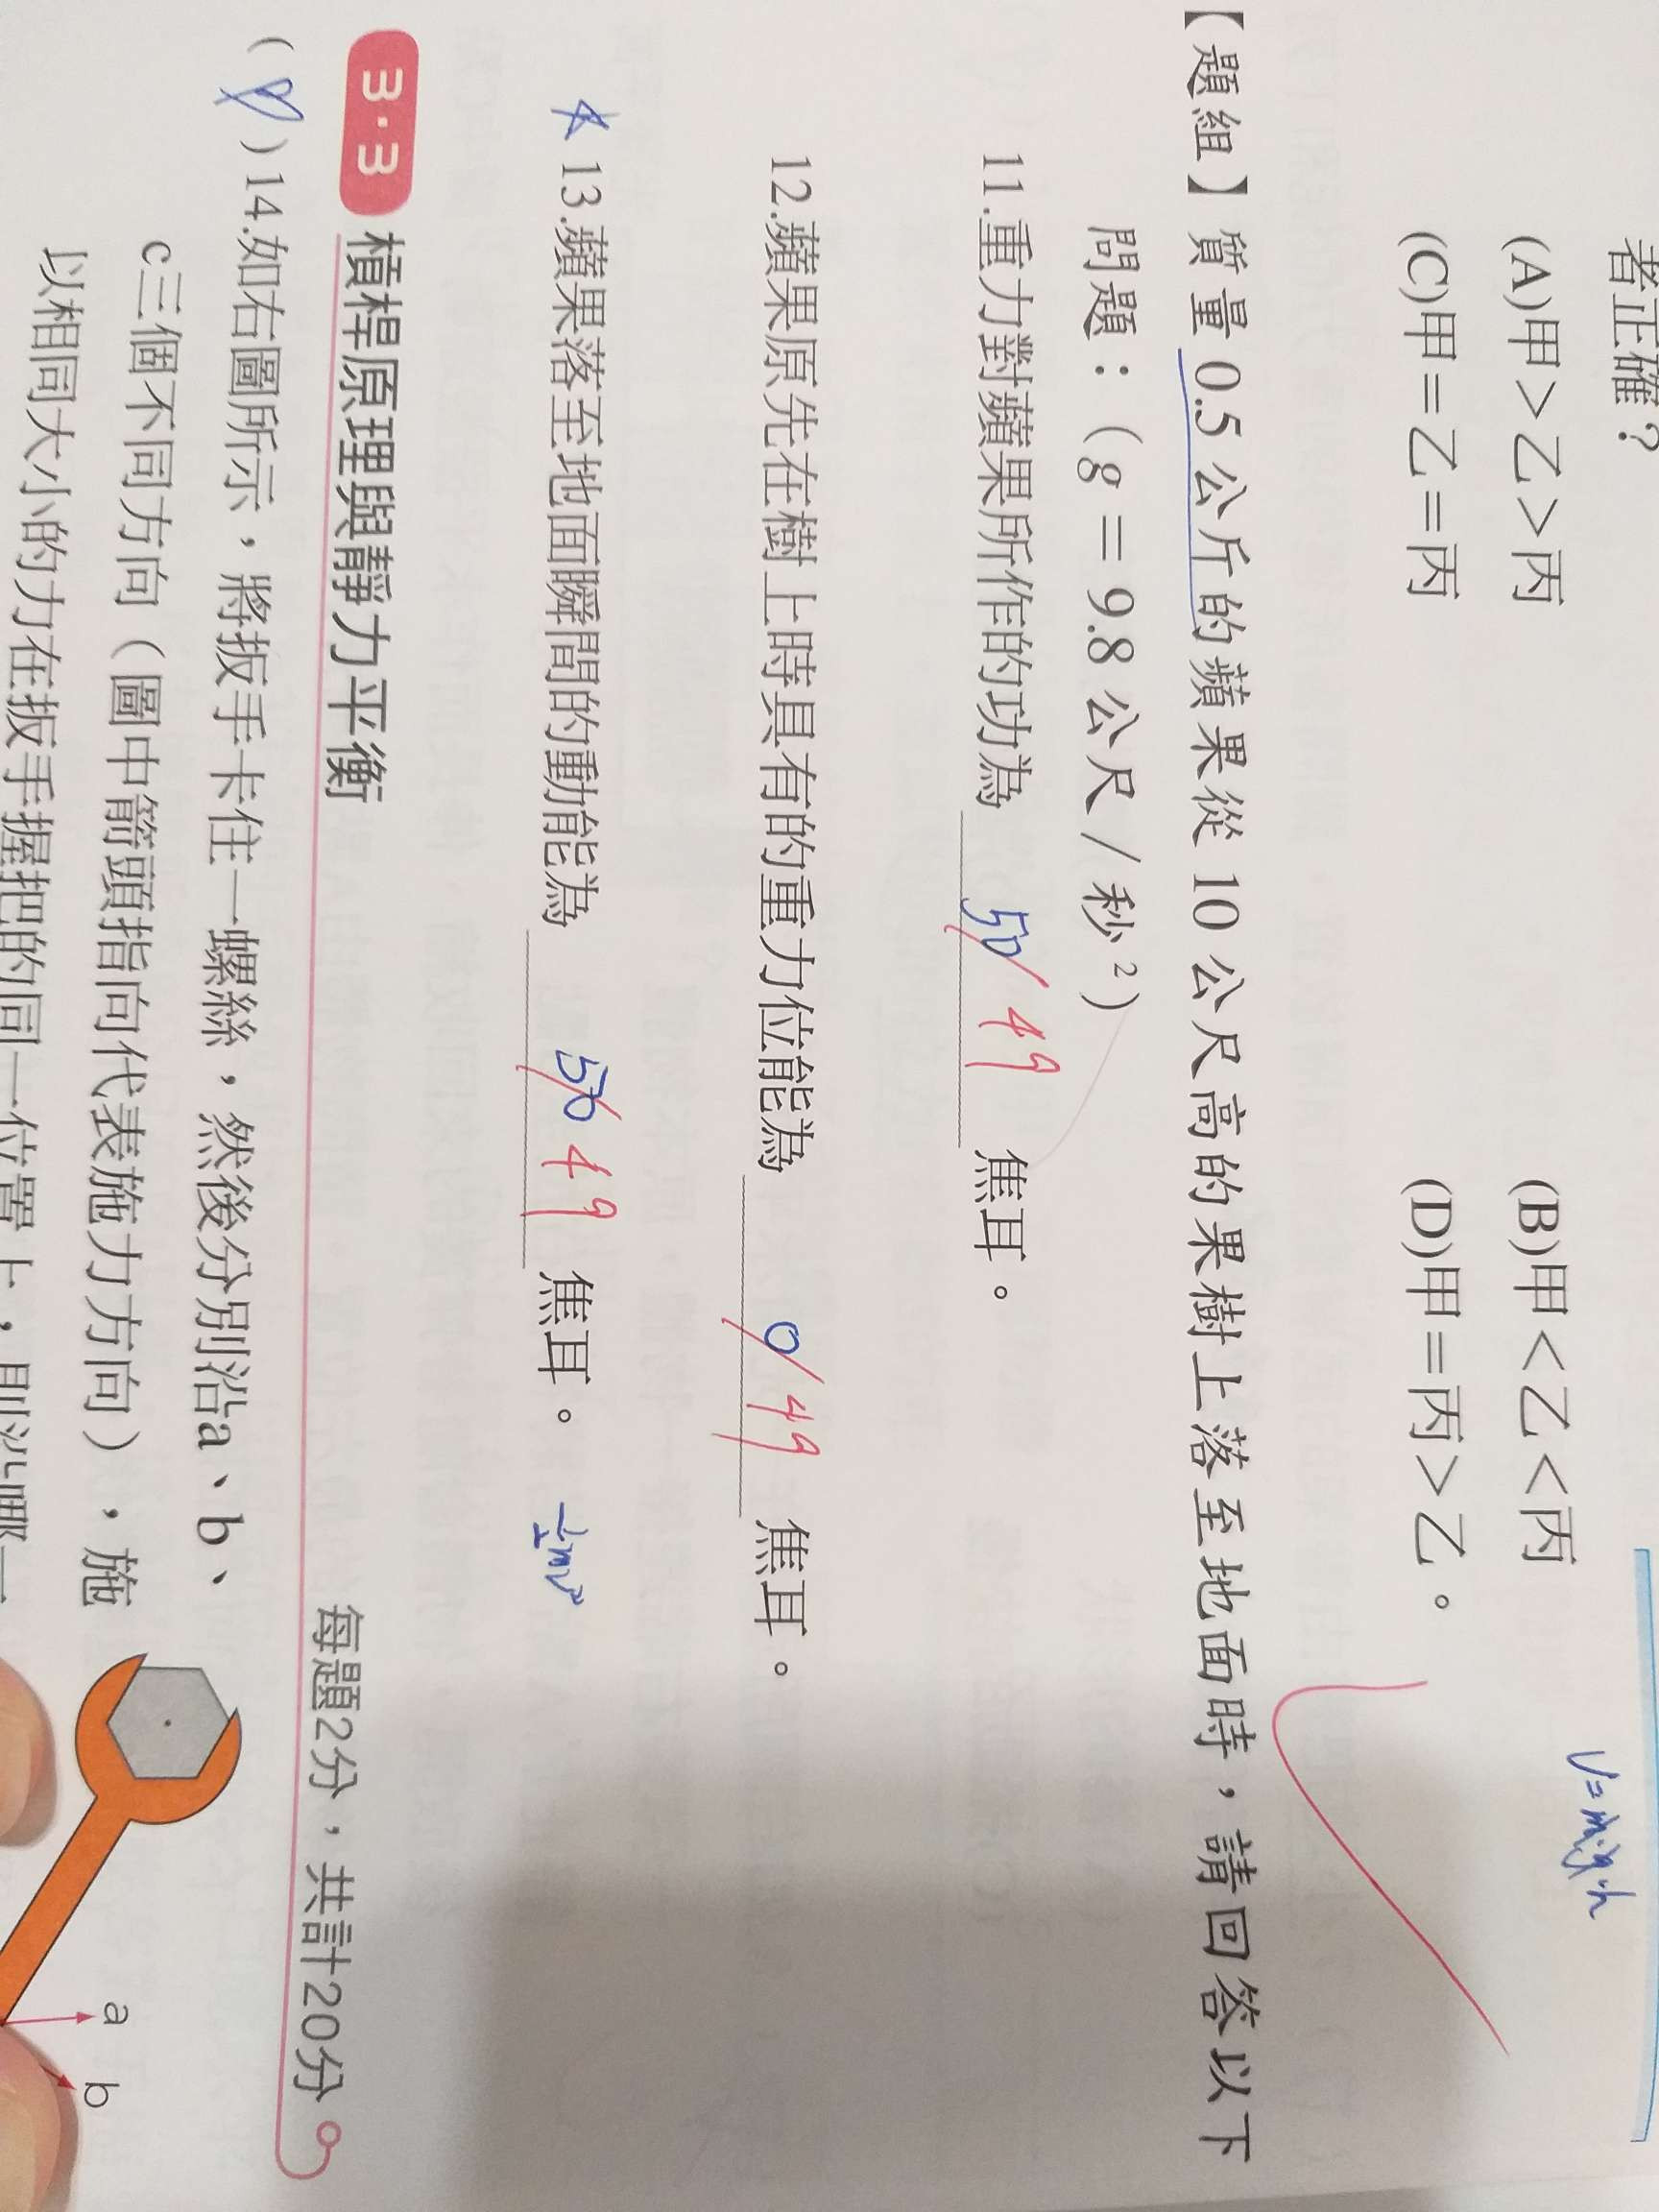 者正確？
(A)甲＞乙＞丙 (B)甲＜乙＜丙
(C)甲＝乙＝丙 (D)甲＝丙＞乙。
U=m·g·h
【題組】質量 0.5 公斤的蘋果從 10 公尺高的果樹上落至地面時，請回答以下
問題：（g＝9.8 公尺／秒²）
11.重力對蘋果所作的功為 50 49 焦耳。
12.蘋果原先在樹上時具有的重力位能為 0 49 焦耳。
13.蘋果落至地面瞬間的動能為 50 49 焦耳。 ½mv²
3·3 槓桿原理與靜力平衡 每題2分，共計20分
( )14.如右圖所示，將扳手卡住一螺絲，然後分別沿a、b、
c三個不同方向（圖中箭頭指向代表施力方向），施
以相同大小的力在扳手握把的同一位置上，則沿哪一
a
b